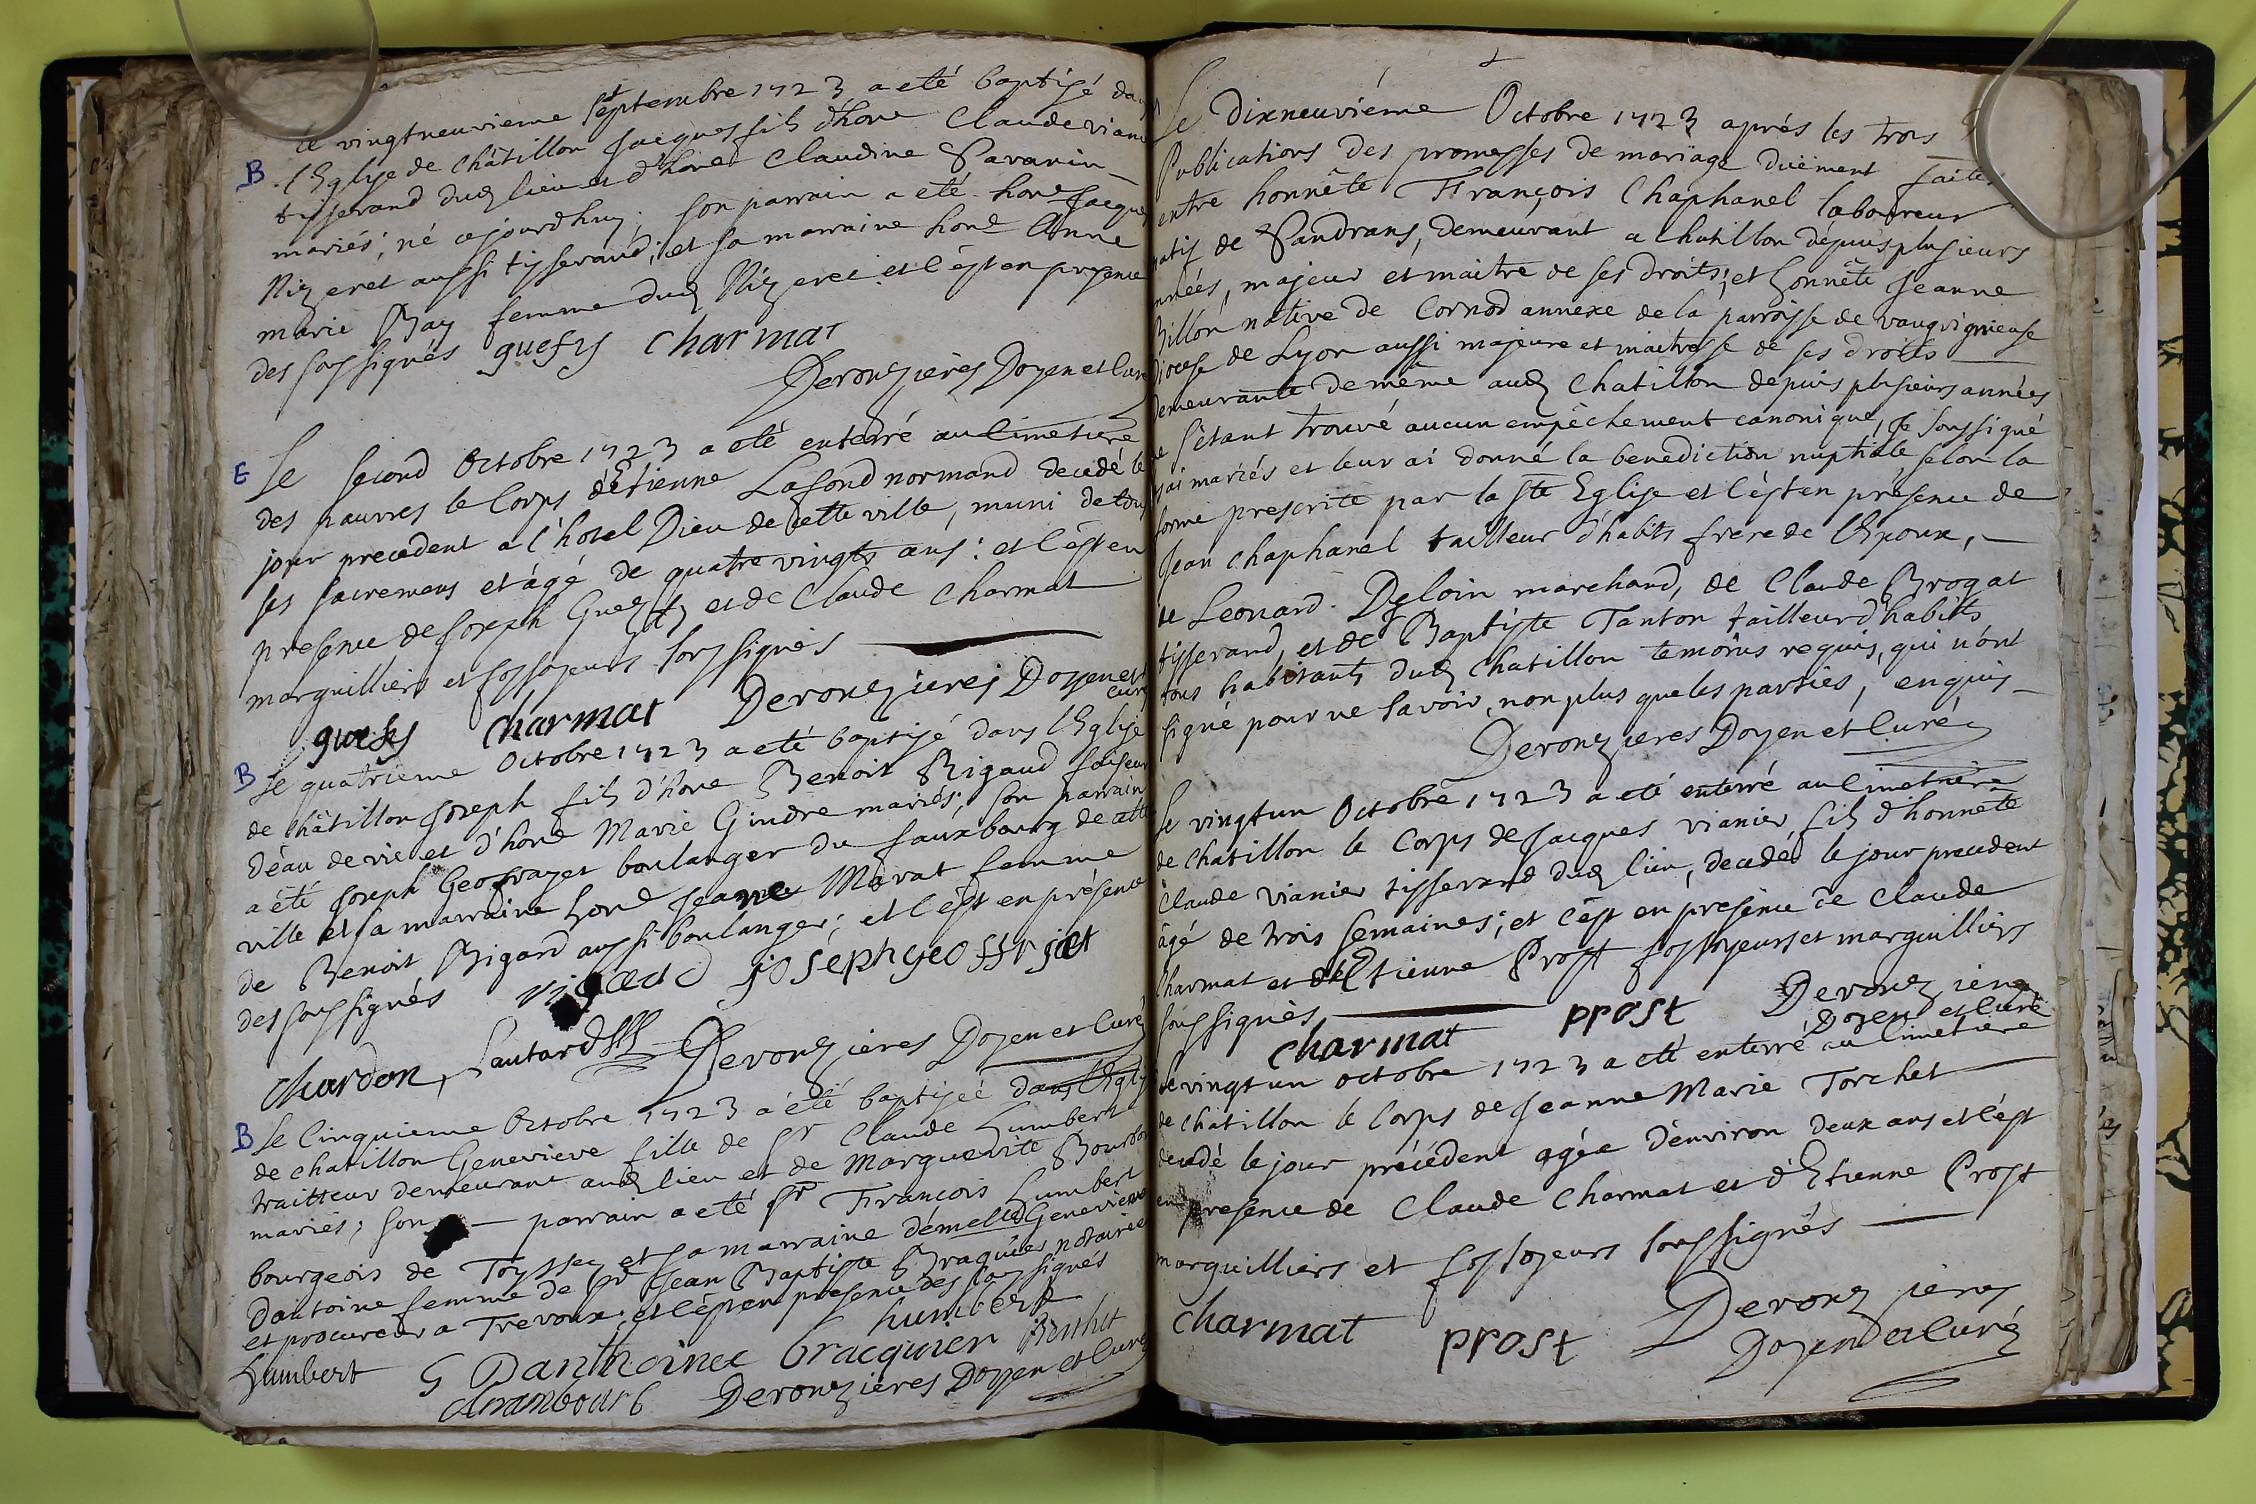 le vingtneuvieme Septembre 1723 a eté baptisé dans
B
l'Eglise de Châtillon Jacques fils d'hone Claude vianier
tisserand dud lieu et d'hone Claudine Pavanin
mariés; né aujourdhuy; son parrain a eté hone Jacques
Nizeret aussi tisserand; et sa marraine hone Anne
marie Bay femme dud Nizeret. et c'est en presence
des soussignés guesty Charmat
Derouzières Doyen et Curé
E
Le second Octobre 1723 a eté enterré au Cimetiere
des pauvres le Corps d'Etienne Lafond normand decedé le
jour precedent a l'hotel Dieu de cette ville, muni de tous
ses sacremens et âgé de quatre vingts ans: et c'est en
presence de Joseph Guesty et de Claude Charmat
marguilliers et fossoyeurs soussignés
guesty Charmat Derouzieres Doyen et
curé
B
Le quatrieme Octobre 1723 a eté baptisé dans l'Eglise
de Châtillon Joseph fils d'hone Benoit Rigaud faiseur
d'eau de vie et d'hone Marie Gindre mariés; son parrain
a été Joseph Geofrayet boulanger du fauxbourg de cette
ville et sa marraine hone Jeanne Morat femme
de Benoit Rigard aussi boulanger; et c'est en présence
des soussignés rigaud joseph geoffrjat
chardon, Lautard Derouzieres Doyen et Curé
B
Le Cinquieme Octobre 1723 a été baptiseé dans l'Eglise
de chatillon Genevieve fille de Sr Claude humbert
traitteur demeurant aud lieu et de Marguerite Bourbon
mariés, son parrain a eté Sr François humbert
bourgeois de Toyssey et sa marraine demelle Genevieve
Dantoine femme de Sr Jean Baptiste Braquier notaire
et procureur a Trevoux; et c'est en presence des soussignés
humbert
humbert G Danthoinee bracquier Berthet
Derouzieres Doyen et Curé
Le Dixneuviéme Octobre 1723 aprés les trois
Publications des promesses de mariage duëment faites
entre honnête François Chaphanel laboureur
natif de Sandrans, demeurant a Chatillon depuis plusieurs
années, majeur et maitre de ses droits; et honnête Jeanne
Billon native de Cornod annexe de la parroisse de vaugrigneuse
Diocese de Lyon aussi majeure et maitresse de ses droits
demeurante de même aud Chatillon depuis plusieurs années
ne s'etant trouvé aucun empêchement canonique, Je soussigné
ai mariés et leur ai donné la benediction nuptiale, selon la
forme prescrite par la Ste Eglise et c'est en presence de
Jean Chaphanel tailleur d'habits frere de l'Epoux,
de Leonard Desloin marchand, de Claude Brogat
tisserand, et de Baptiste Tanton tailleur d'habits
tous habitants dud Chatillon temoins requis, qui n'ont
signé pour ne savoir, non plus que les parties, enquis
Derouzieres Doyen et Curé
Le vingt un Octobre 1723 a eté enterré au Cimetiere
de Chatillon le Corps de Jacques vianier, fils d'honnête
Claude vianier tisserand dud lieu, decedé le jour precedent
âgé de trois semaines; et c'est en presence de Claude
Charmat et d'Etienne Prost fossoyeurs et marguilliers
soussignés,
charmat prost Derouzieres
Doyen et Curé
Le vingt un octobre 1723 a eté enterré au Cimetiere
de Chatillon le Corps de Jeanne Marie Torchet
decedé le jour précédent agée d'environ deux ans et c'est
en presence de Claude Charmat et d'Etienne Prost
marguilliers et fossoyeurs soussignés
charmat prost Derouzieres
Doyen et Curé